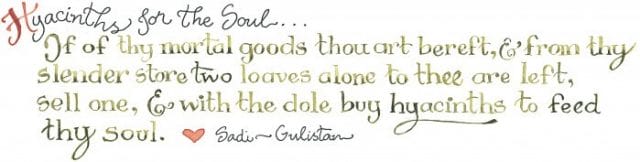 Hyacinths for the Soul...
If of thy mortal goods thou art bereft, & from thy
slender store two loaves alone to thee are left,
sell one, & with the dole buy hyacinths to feed
thy soul. ❤ Sadi~Gulistan